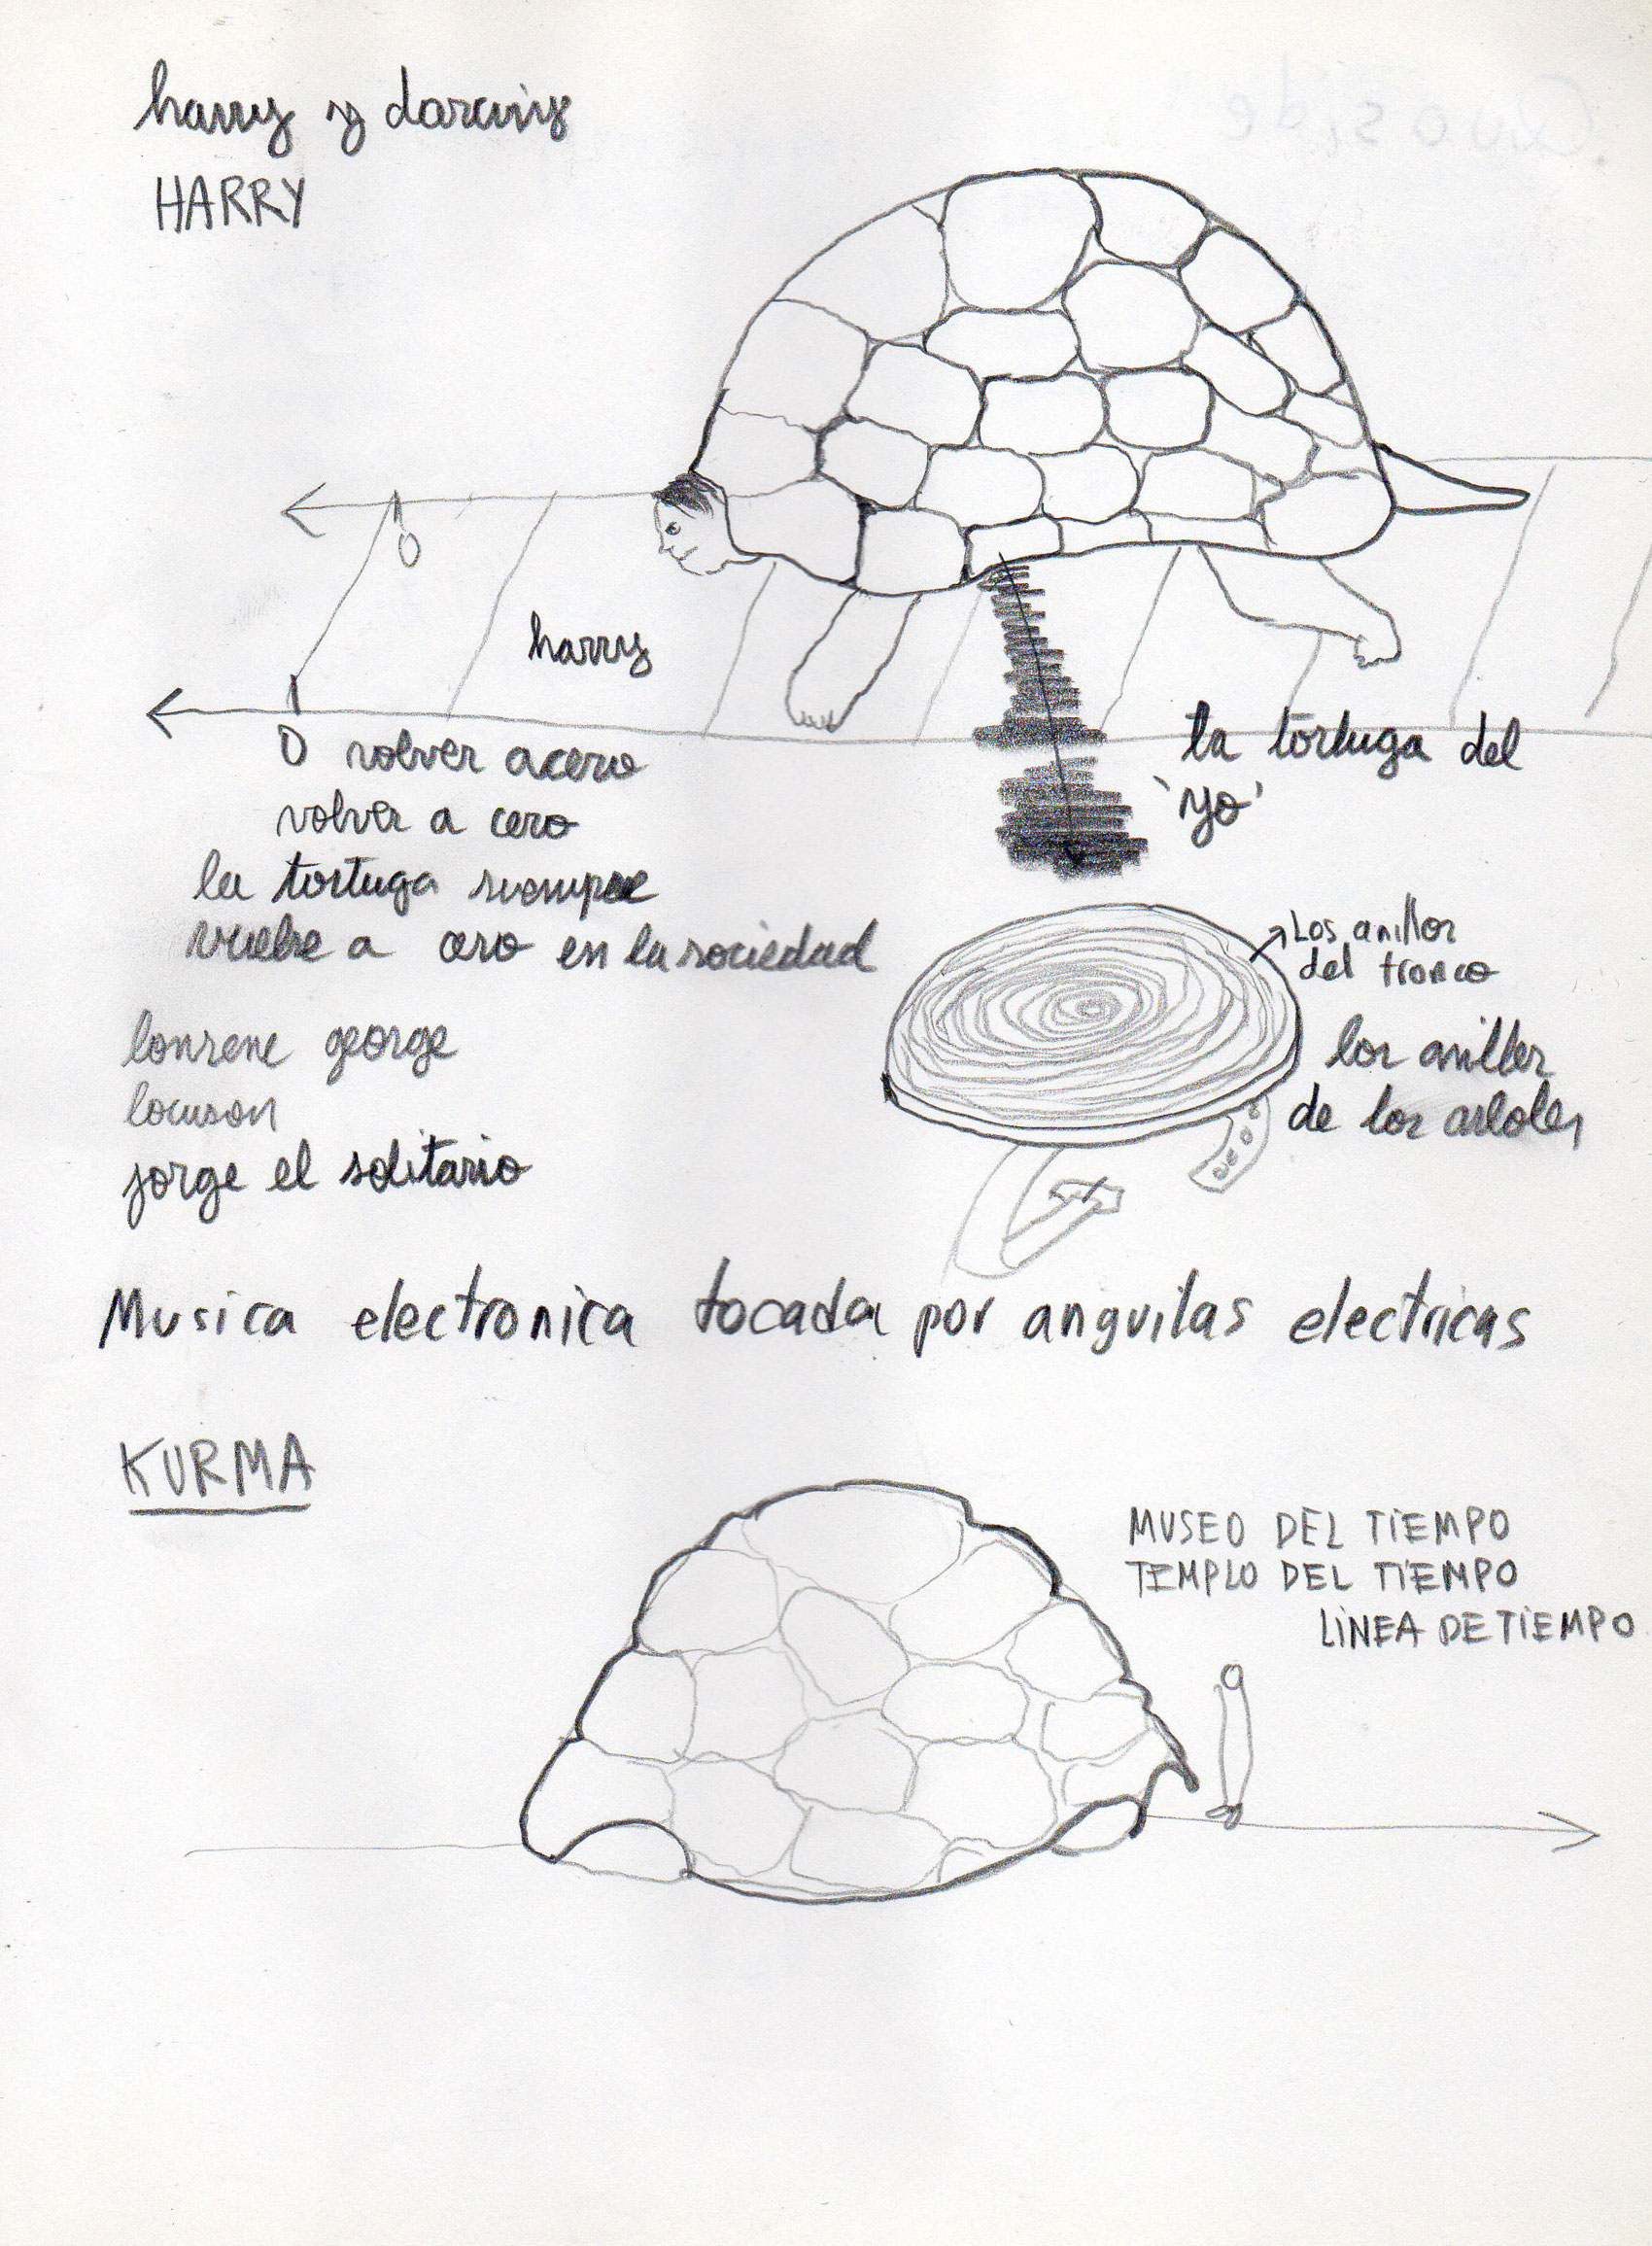 harry y darwin
HARRY
0
harry
0 volver a cero
volver a cero
la tortuga siempre
vuelve a cero en la sociedad
la tortuga del
'yo'
Los anillos
del tronco
los anillos
de los arboles
george
jorge el solitario
Musica electronica tocada por anguilas electricas
KURMA
MUSEO DEL TIEMPO
TEMPLO DEL TIEMPO
LINEA DE TIEMPO